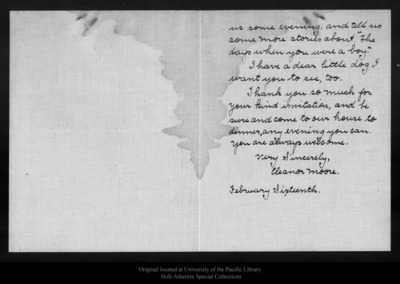 us some evening, and tell us
some more stories about, "The
days when you were a boy."
I have a dear little dog I
want you to see, too.
I thank you so much for
your kind invitation, and be
sure and come to our house to
dinner, any evening you can.
You are always welcome.
Very Sincerely,
Eleanor Moore.
February Sixteenth.
Original located at University of the Pacific Library
Holt-Atherton Special Collections